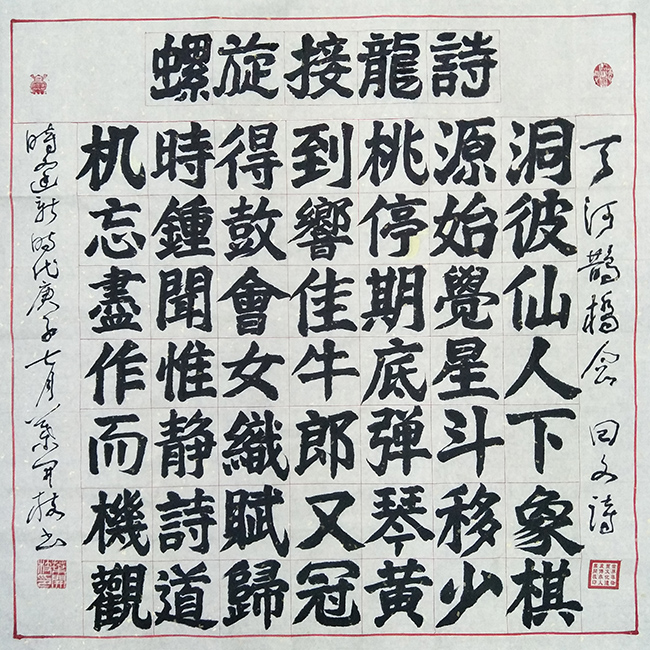 螺旋接龍詩
天河鵲橋會 回文詩
洞彼仙人下象棋
源始覺星斗移少
桃停期底弹琴黄
到響佳牛郎又冠
得鼓會女織賦歸
時鍾聞惟静詩道
机忘盡作而機觀
時逢新時代庚子七月 書